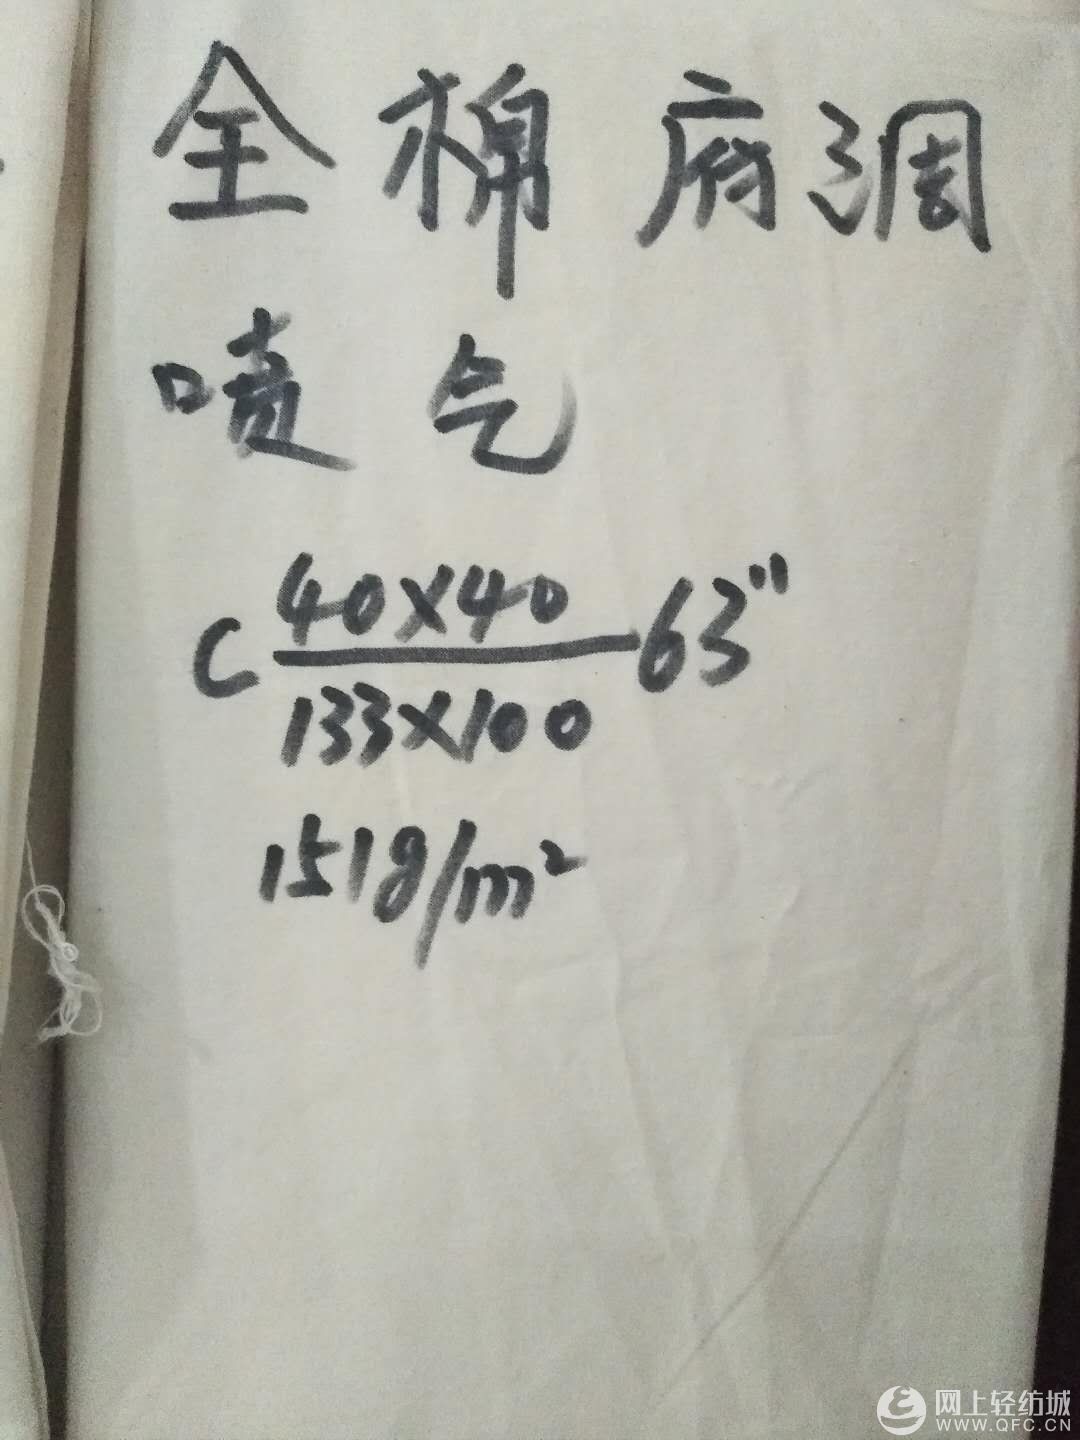 全棉府调
喷气
C 40X40 63"
133X100
151g/m²
网上轻纺城
WWW.QFC.CN